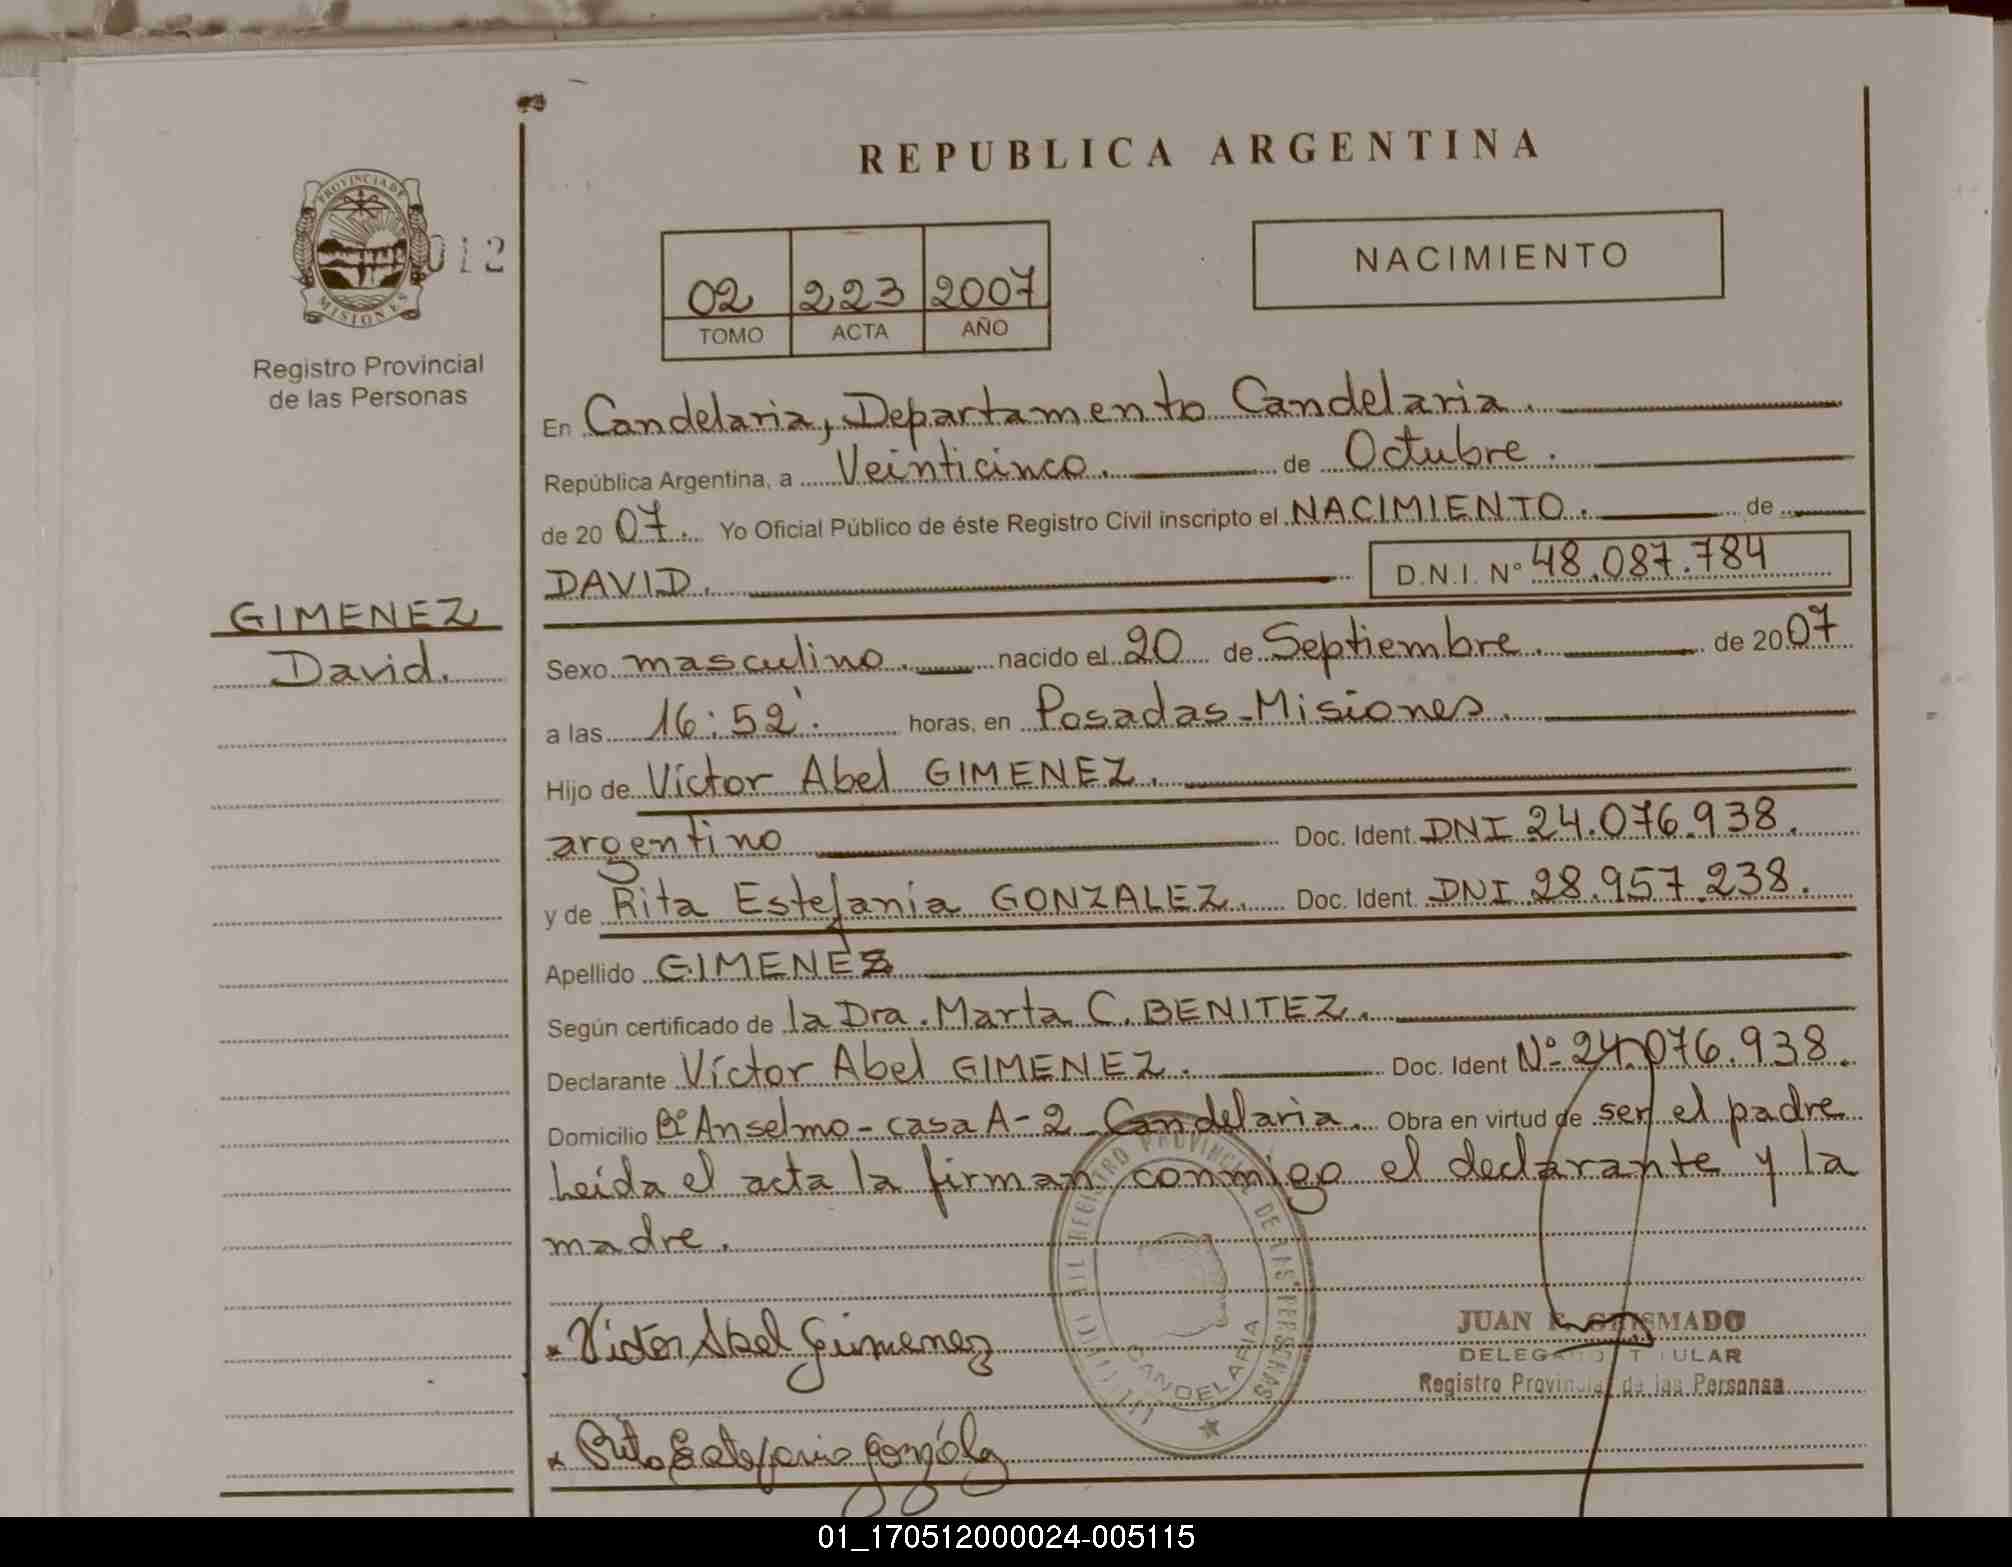 REPUBLICA ARGENTINA
PROVINCIA DE
MISIONES
012
Registro Provincial
de las Personas
02 223 2007
TOMO ACTA AÑO
NACIMIENTO
En Candelaria, Departamento Candelaria.
República Argentina, a Veinticinco. de Octubre.
de 20 07. Yo Oficial Público de éste Registro Civil inscripto el NACIMIENTO. de
DAVID. D.N.I. Nº 48.087.784
GIMENEZ
David.
Sexo masculino. nacido el 20 de Septiembre. de 20 07
a las 16:52'. horas, en Posadas-Misiones.
Hijo de Víctor Abel GIMENEZ.
argentino Doc. Ident. DNI 24.076.938.
y de Rita Estefanía GONZALEZ. Doc. Ident. DNI 28.957.238.
Apellido GIMENEZ
Según certificado de la Dra. Marta C. BENITEZ.
Declarante Víctor Abel GIMENEZ. Doc. Ident Nº 24.076.938.
Domicilio Bº Anselmo - casa A-2 - Candelaria. Obra en virtud de ser el padre
Leída el acta la firman conmigo el declarante y la
madre.
Victor Abel Gimenez
Rita Estefania Gonzalez
REGISTRO PROVINCIAL DE LAS PERSONAS
CANDELARIA
JUAN
DELEGADO TITULAR
Registro Provincial de las Personas
01_170512000024-005115